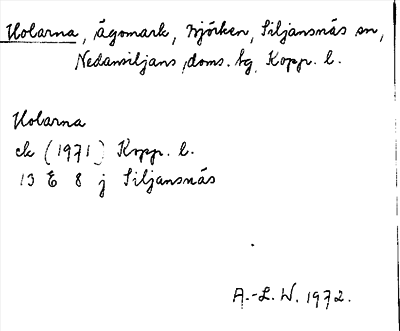 Holarna, ägomark, Björken, Siljansnäs sn,
Nedansiljans doms. tg, Kopp. l.
Holarna
ek (1971) Kopp. l.
13 E 8 j Siljansnäs
A.-L. W. 1972.